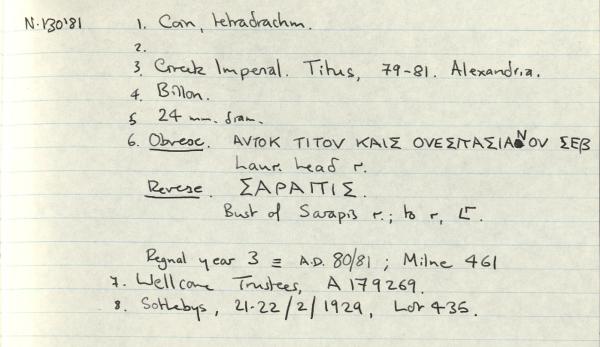 N.130'81 1. Coin, tetradrachm.
2.
3. Greek Imperial. Titus, 79-81. Alexandria.
4. Billon.
5 24 mm. diam.
6. Obverse. ΑΥΤΟΚ ΤΙΤΟΥ ΚΑΙΣ ΟΥΕΣΠΑΣΙΑΝΟΥ ΣΕΒ
Laur. head r.
Reverse. ΣΑΡΑΠΙΣ.
Bust of Sarapis r.; to r,
Regnal year 3 ≡ A.D. 80/81 ; Milne 461
7. Wellcome Trustees, A179269.
8. Sothebys, 21-22/2/1929, Lot 435.